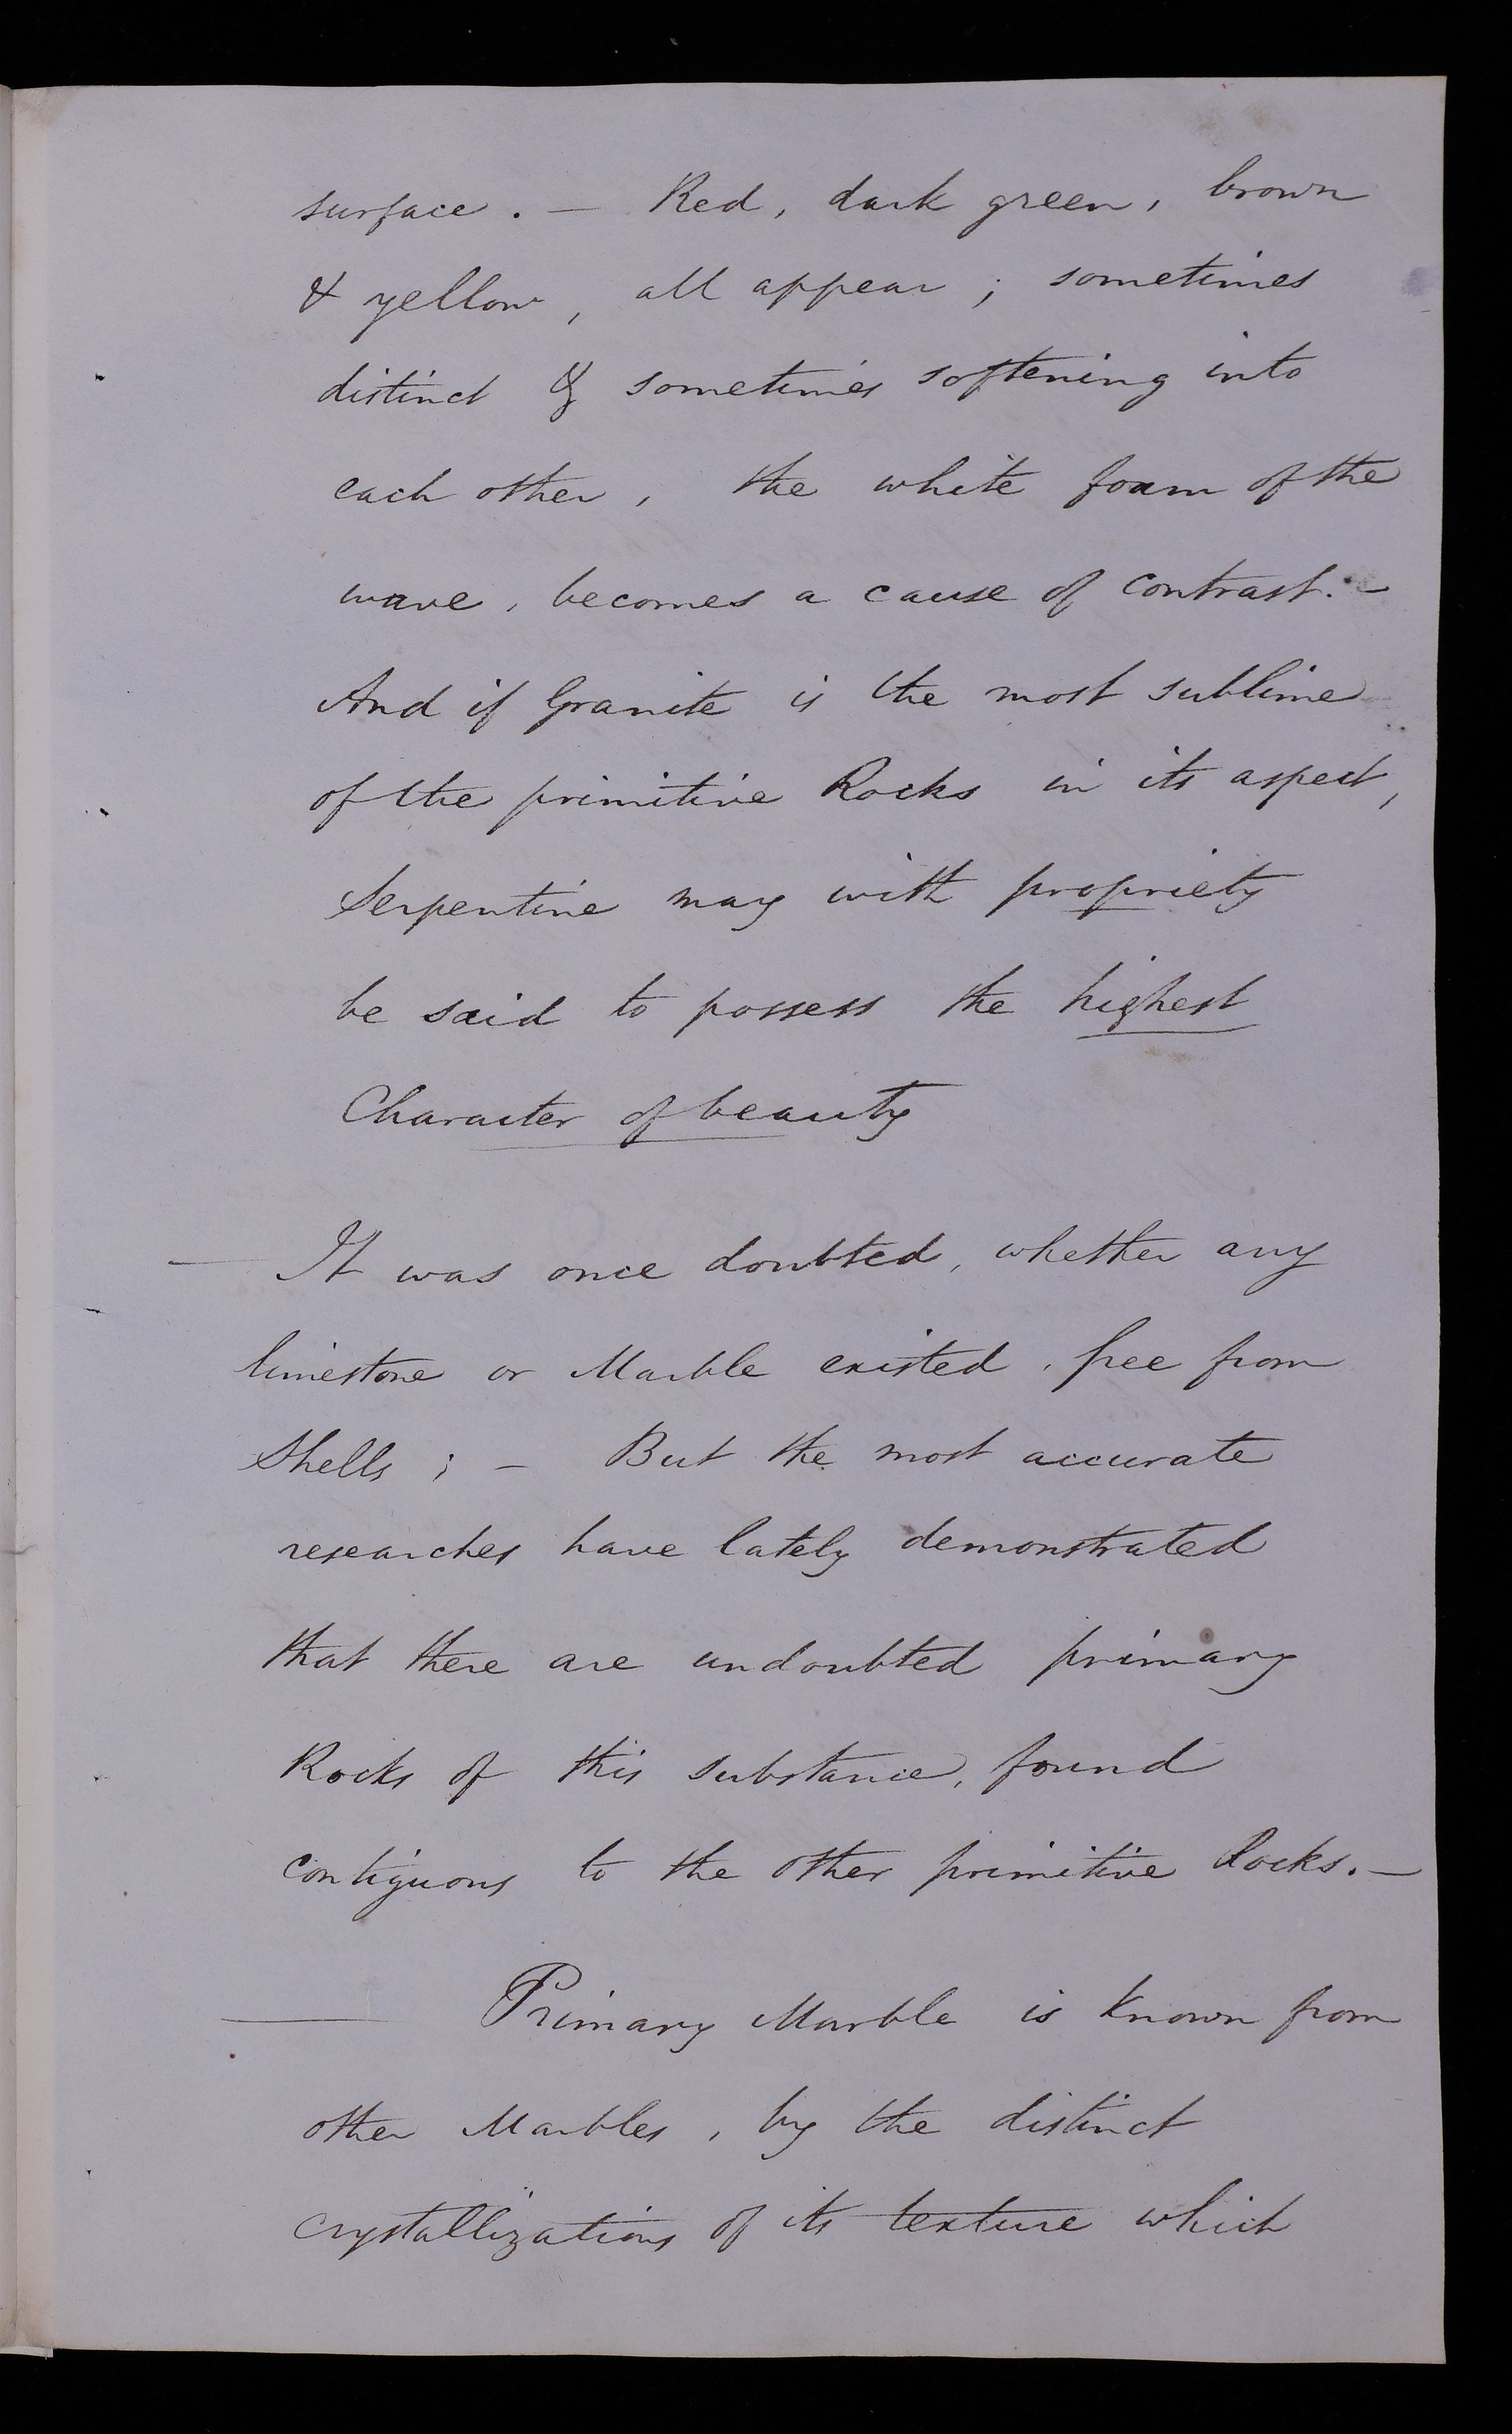 surface. — Red, dark green, brown
& yellow, all appear; sometimes
distinct & sometimes softening into
each other, the white foam of the
wave, becomes a cause of contrast. —
And if Granite is the most sublime
of the primitive Rocks in its aspect,
Serpentine may with propriety
be said to possess the highest
Character of beauty
— It was once doubted, whether any
limestone or Marble existed, free from
Shells; — But the most accurate
researches have lately demonstrated
that there are undoubted primary
Rocks of this substance, found
contiguous to the other primitive Rocks. —
— Primary Marble is known from
other Marbles, by the distinct
crystallizations of its texture which